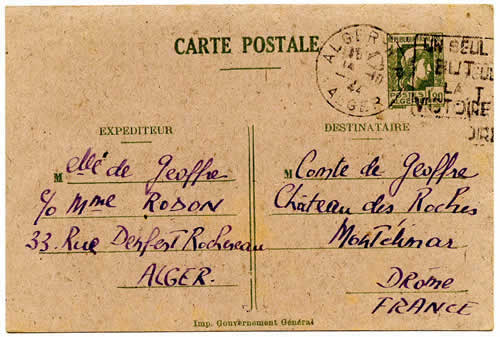 CARTE POSTALE
ALGER
14
44
ALGER
UN SEUL
BUT
LA
VICTOIRE
POSTES
ALGERIE
1F20
EXPÉDITEUR
Melle de Geoffre
c/o Mme ROBON
33. Rue Denfert Rochereau
ALGER.
DESTINATAIRE
M Comte de Geoffre
Château des Roches
Montélimar
DROME
FRANCE
Imp. Gouvernement Général